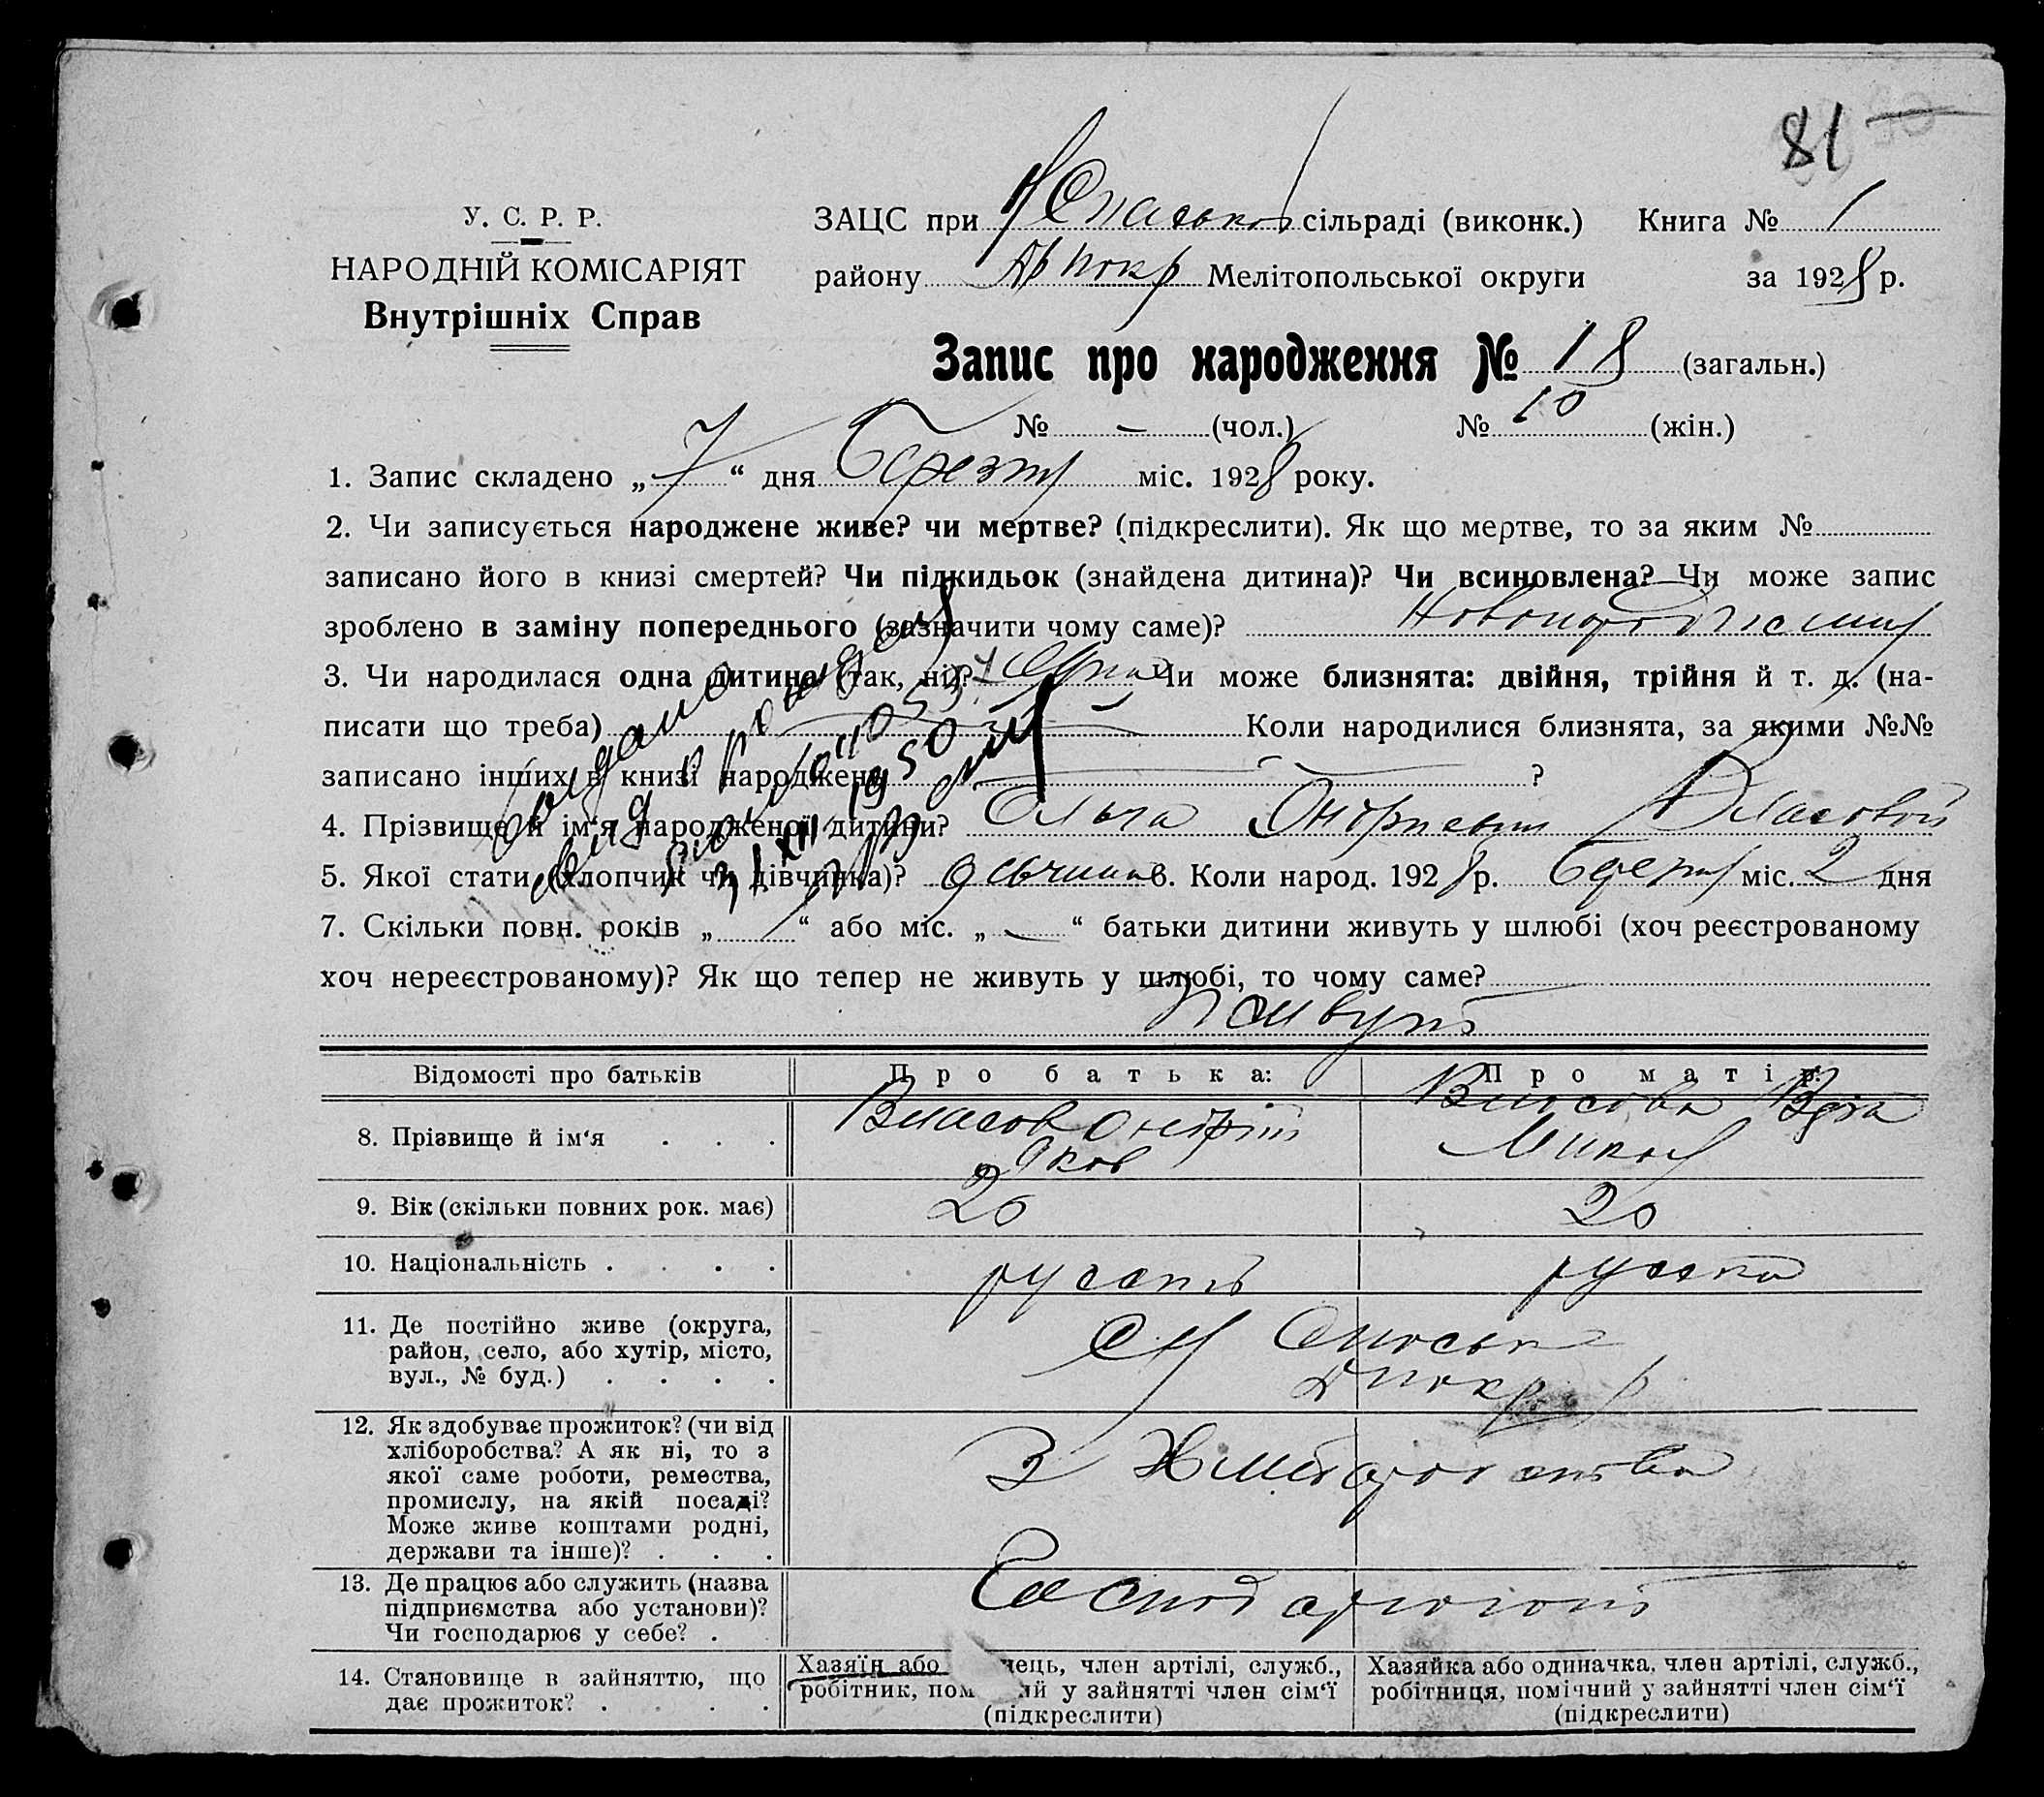 81
У. С. Р. Р.
НАРОДНІЙ КОМІСАРІЯТ
Внутрішніх Справ
ЗАЦС при Н Спаській сільраді (виконк.) Книга № 1
району Мелітопольської округи за 1928 р.
Запис про народження № 18 (загальн.)
№ — (чол.) № 10 (жін.)
1. Запис складено „7“ дня Березня міс. 1928 року.
2. Чи записується народжене живе? чи мертве? (підкреслити). Як що мертве, то за яким №
записано його в книзі смертей? Чи підкидьок (знайдена дитина)? Чи всиновлена? Чи може запис
зроблено в заміну попереднього (зазначити чому саме)?
3. Чи народилася одна дитина (так, ні)? Одна Чи може близнята: двійня, трійня й т. д. (на-
писати що треба) — Коли народилися близнята, за якими №№
записано інших в книзі народжень — ?
4. Прізвище й ім‘я народженої дитини? Ольга Андріевна Власовой
5. Якої стати (хлопчик чи дівчинка)? дівчина 6. Коли народ. 1928 р. Березня міс. 2 дня
7. Скільки повн. років „1“ або міс. „—“ батьки дитини живуть у шлюбі (хоч реєстрованому
хоч нереєстрованому)? Як що тепер не живуть у шлюбі, то чому саме?
Живуть
Відомості про батьків Про батька: Про матір:
8. Прізвище й ім‘я . . . Власов Андрій Яков Власова Віра Микол
9. Вік (скільки повних рок. має) 20 20
10. Національність . . . . русский русска
11. Де постійно живе (округа,
район, село, або хутір, місто,
вул., № буд.) . . . .
12. Як здобуває прожиток? (чи від
хліборобства? А як ні, то з
якої саме роботи, ремества,
промислу, на якій посаді?
Може живе коштами родні,
держави та інше)? . . .
З Хліборобства
13. Де працює або служить (назва
підприємства або установи)?
Чи господарює у себе? .
14. Становище в зайняттю, що
дає прожиток? . . . .
Хазяїн або нець, член артілі, служб.,
робітник, пом ий у зайнятті член сім‘ї
(підкреслити)
Хазяйка або одиначка, член артілі, служб.,
робітниця, помічний у зайнятті член сім‘ї
(підкреслити)